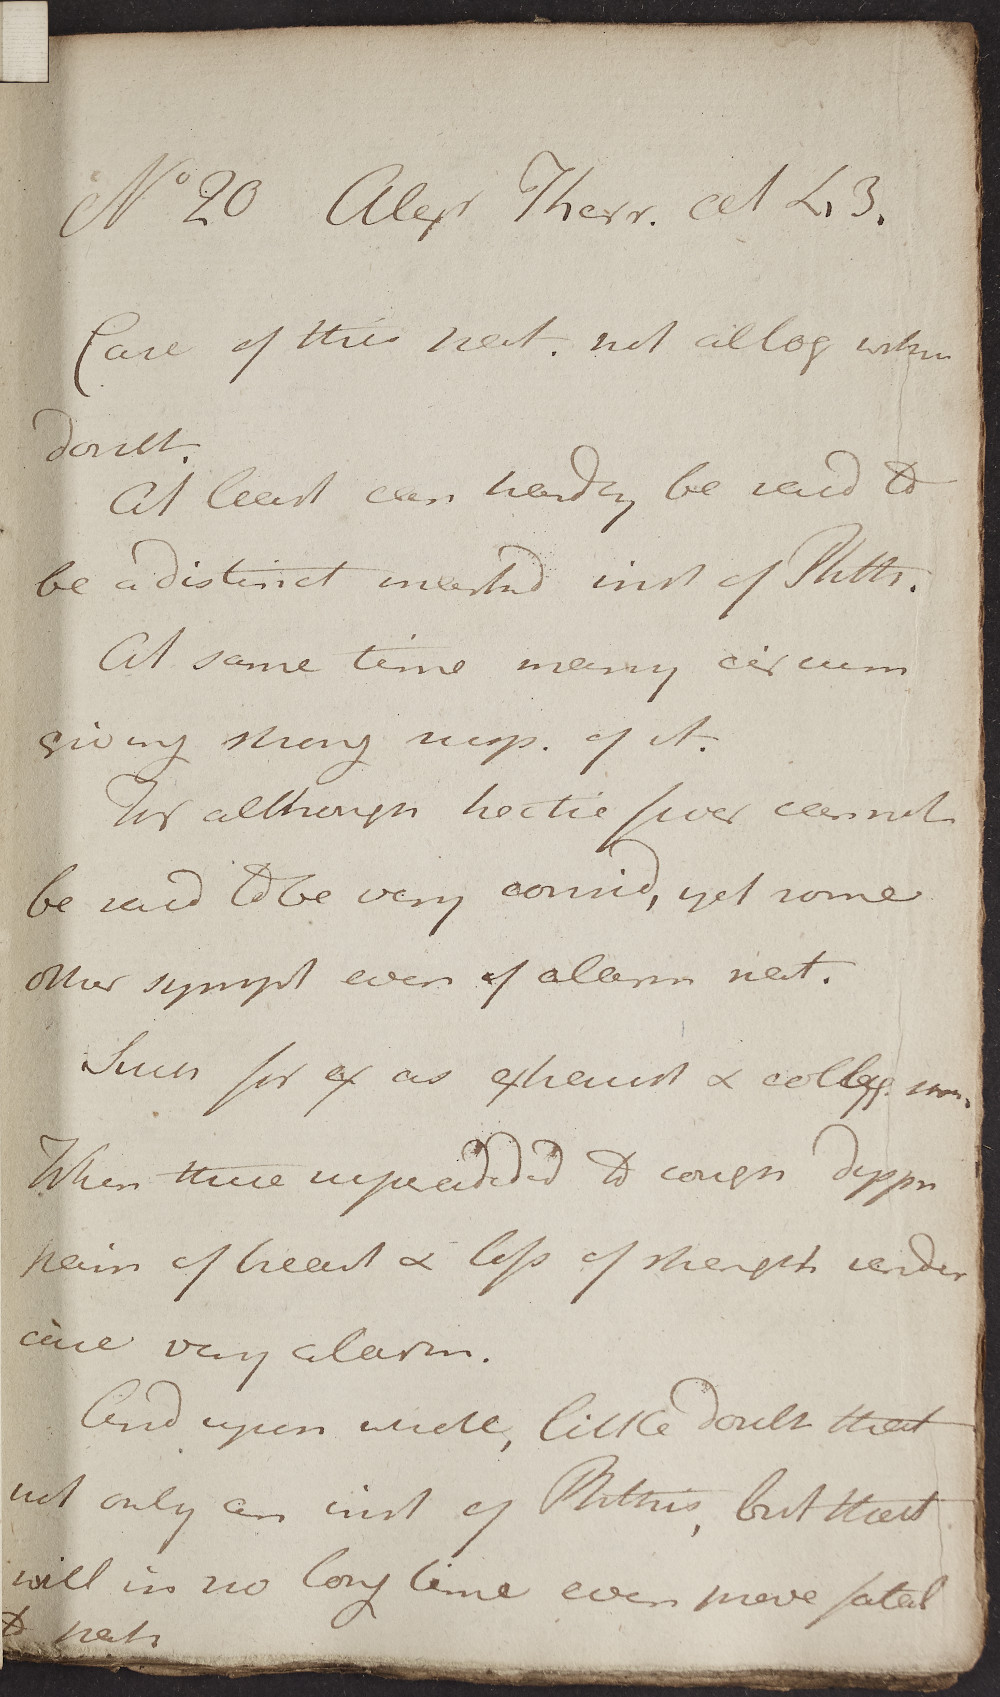 No 20 Alexr Therr. aet 43.
Case of this pat. not altog witho
doubt.
At least can hardly be said to
be a distinct marked inst of Phth.
At same time many circum
giving strong susp. of it.
For although hectic fever cannot
be said to be very consid, yet some
other sympt even of alarm pat.
Such for ex as exhaust &
When these superadded to cough
pain of breast & loss of strength render
case very alarm.
And upon whole, little doubt that
not only an inst of Phthisis, but that
will in no long time even prove fatal
to pat